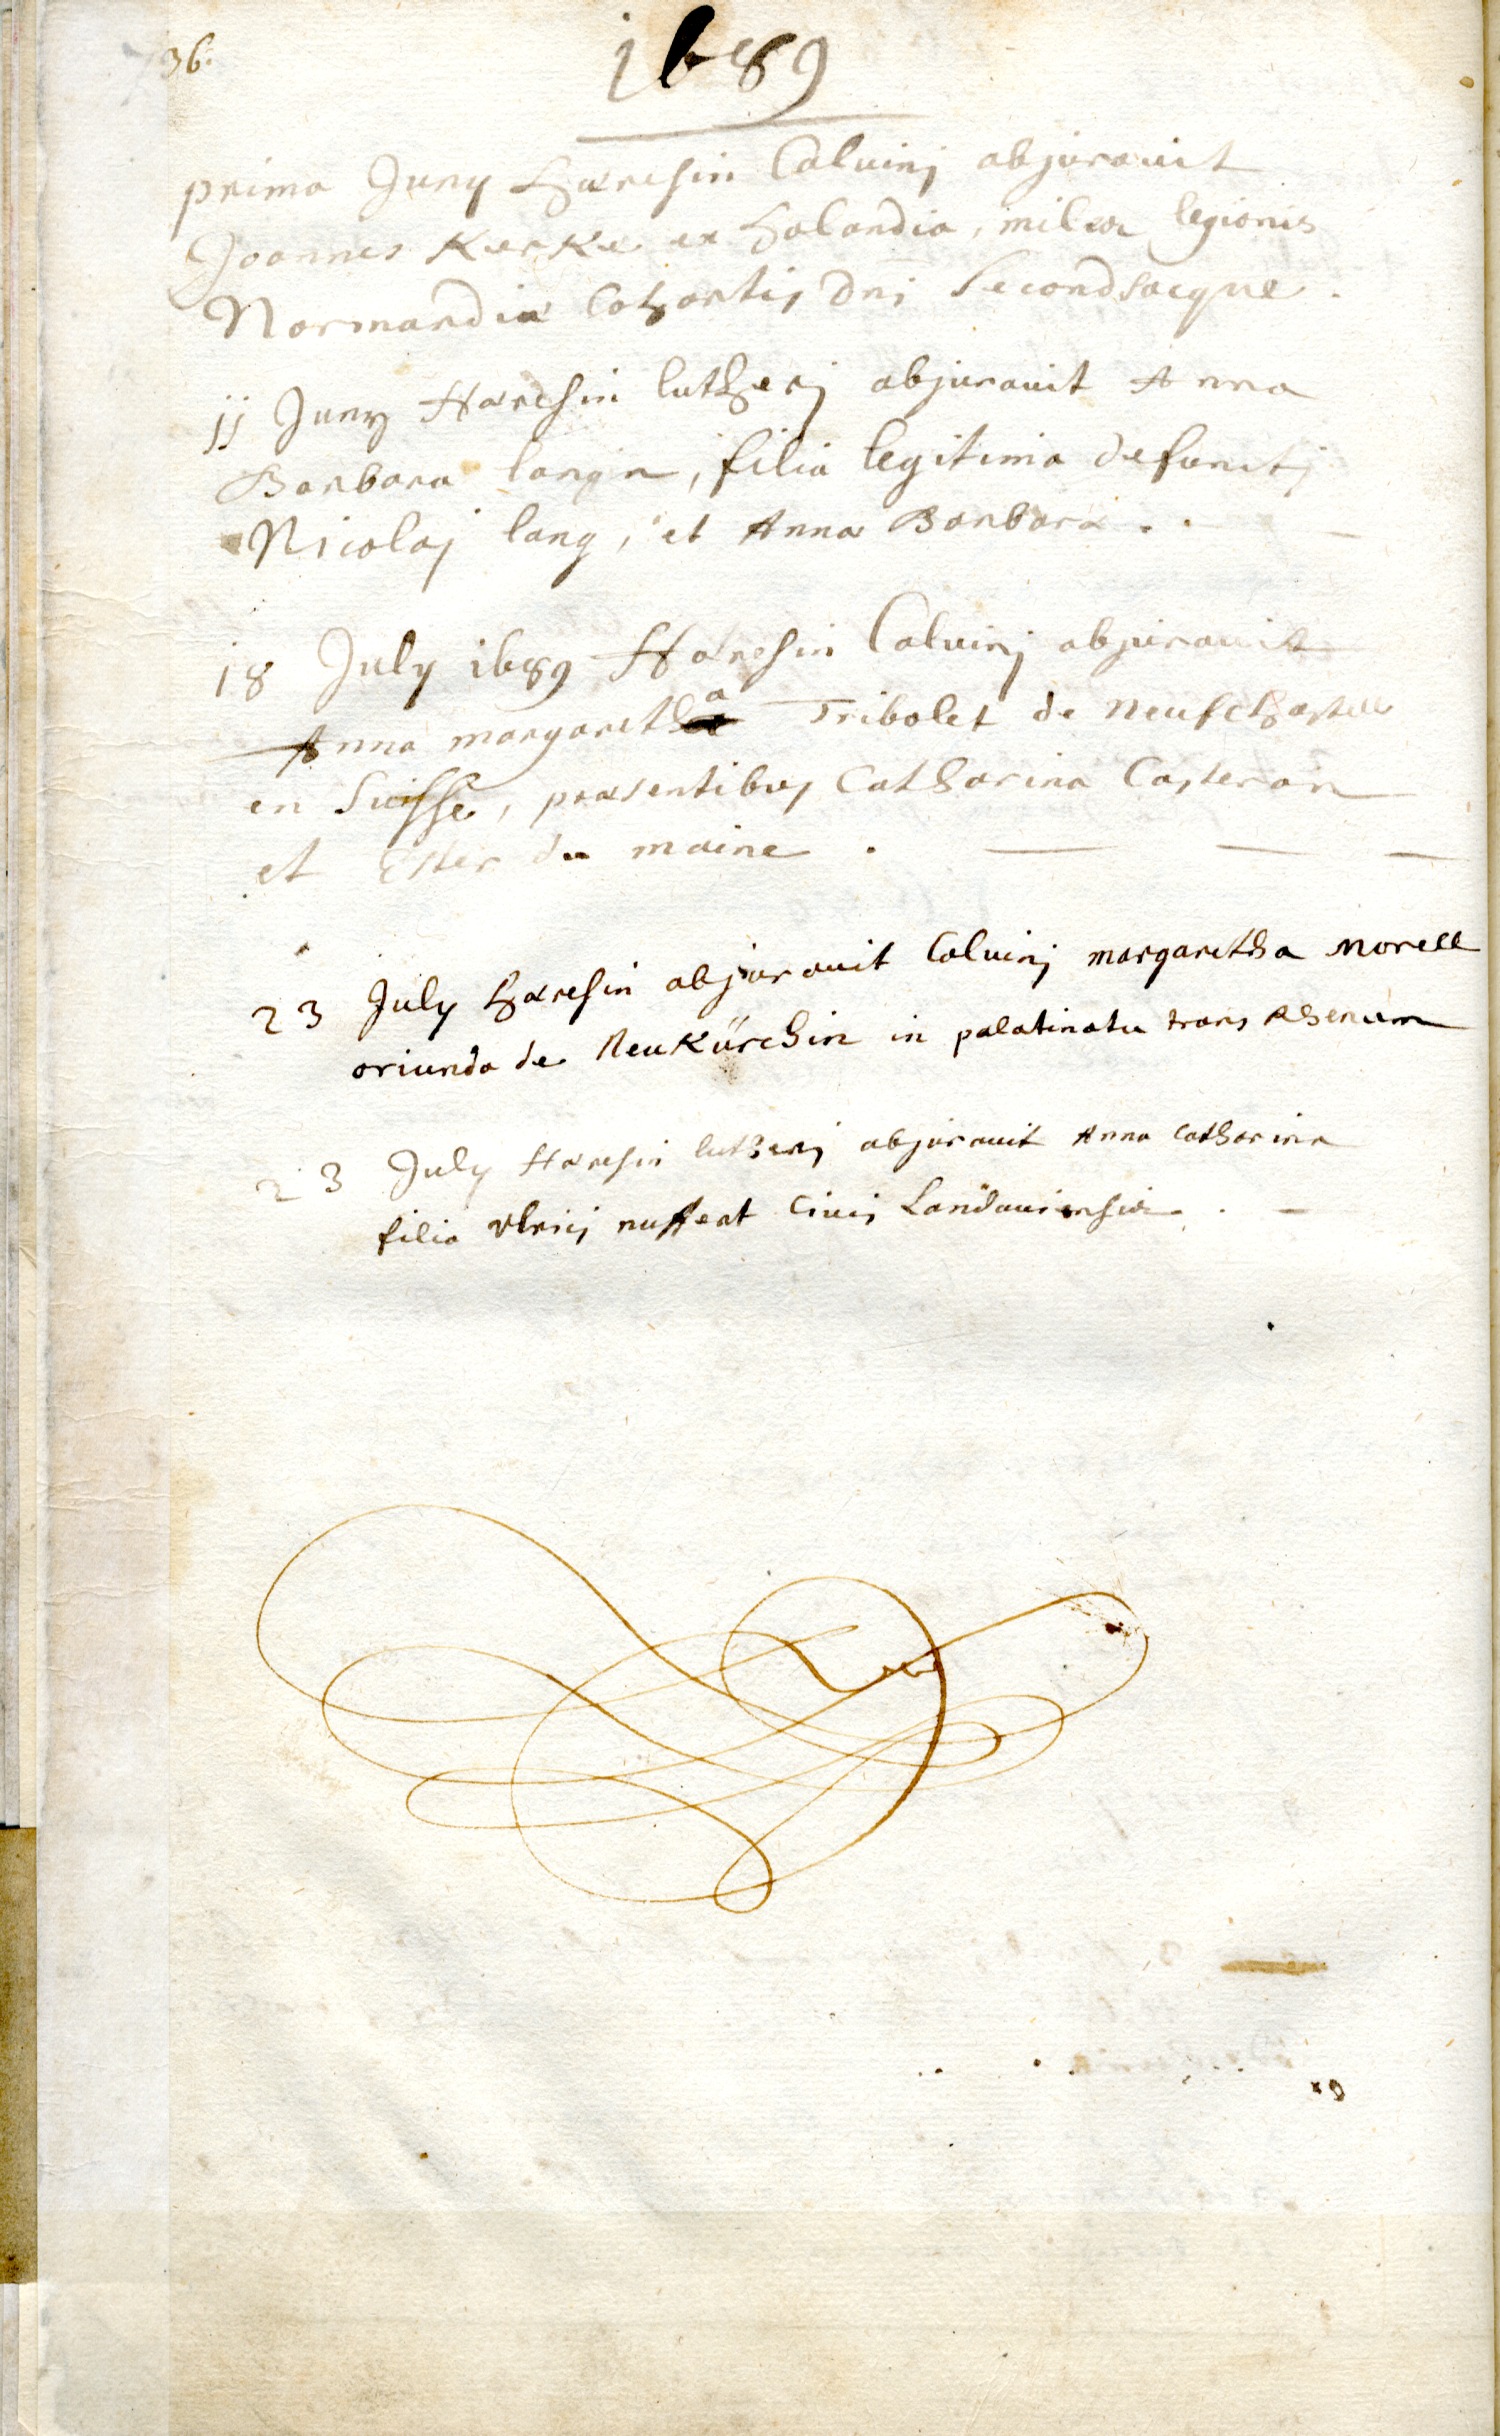 36.
1689
prima Juny hæresin Caluinj abjurauit
Joannes Kerke ex holandia, miles legionis
Normandiæ Cohortis Dni Secondsacque.
11 Juny Hæresin lutherj abjurauit Anna
Barbara langin, filia legitima defunctj
Nicolaj lang, et Annæ Barbaræ..
18 July 1689 Hæresin Caluinj abjurauit
Anna margaretha Tribolet de neufchastell
en Suisse, præsentibus Catharina Casteran
et Ester du maine.
23 July hæresin abjurauit Caluinj margaretha morell
oriunda de Neukürchin in palatinatu trans Rhenum
23 July Hæresin lutherj abjurauit Anna Catharina
filia vlricj civis Landauiensis.